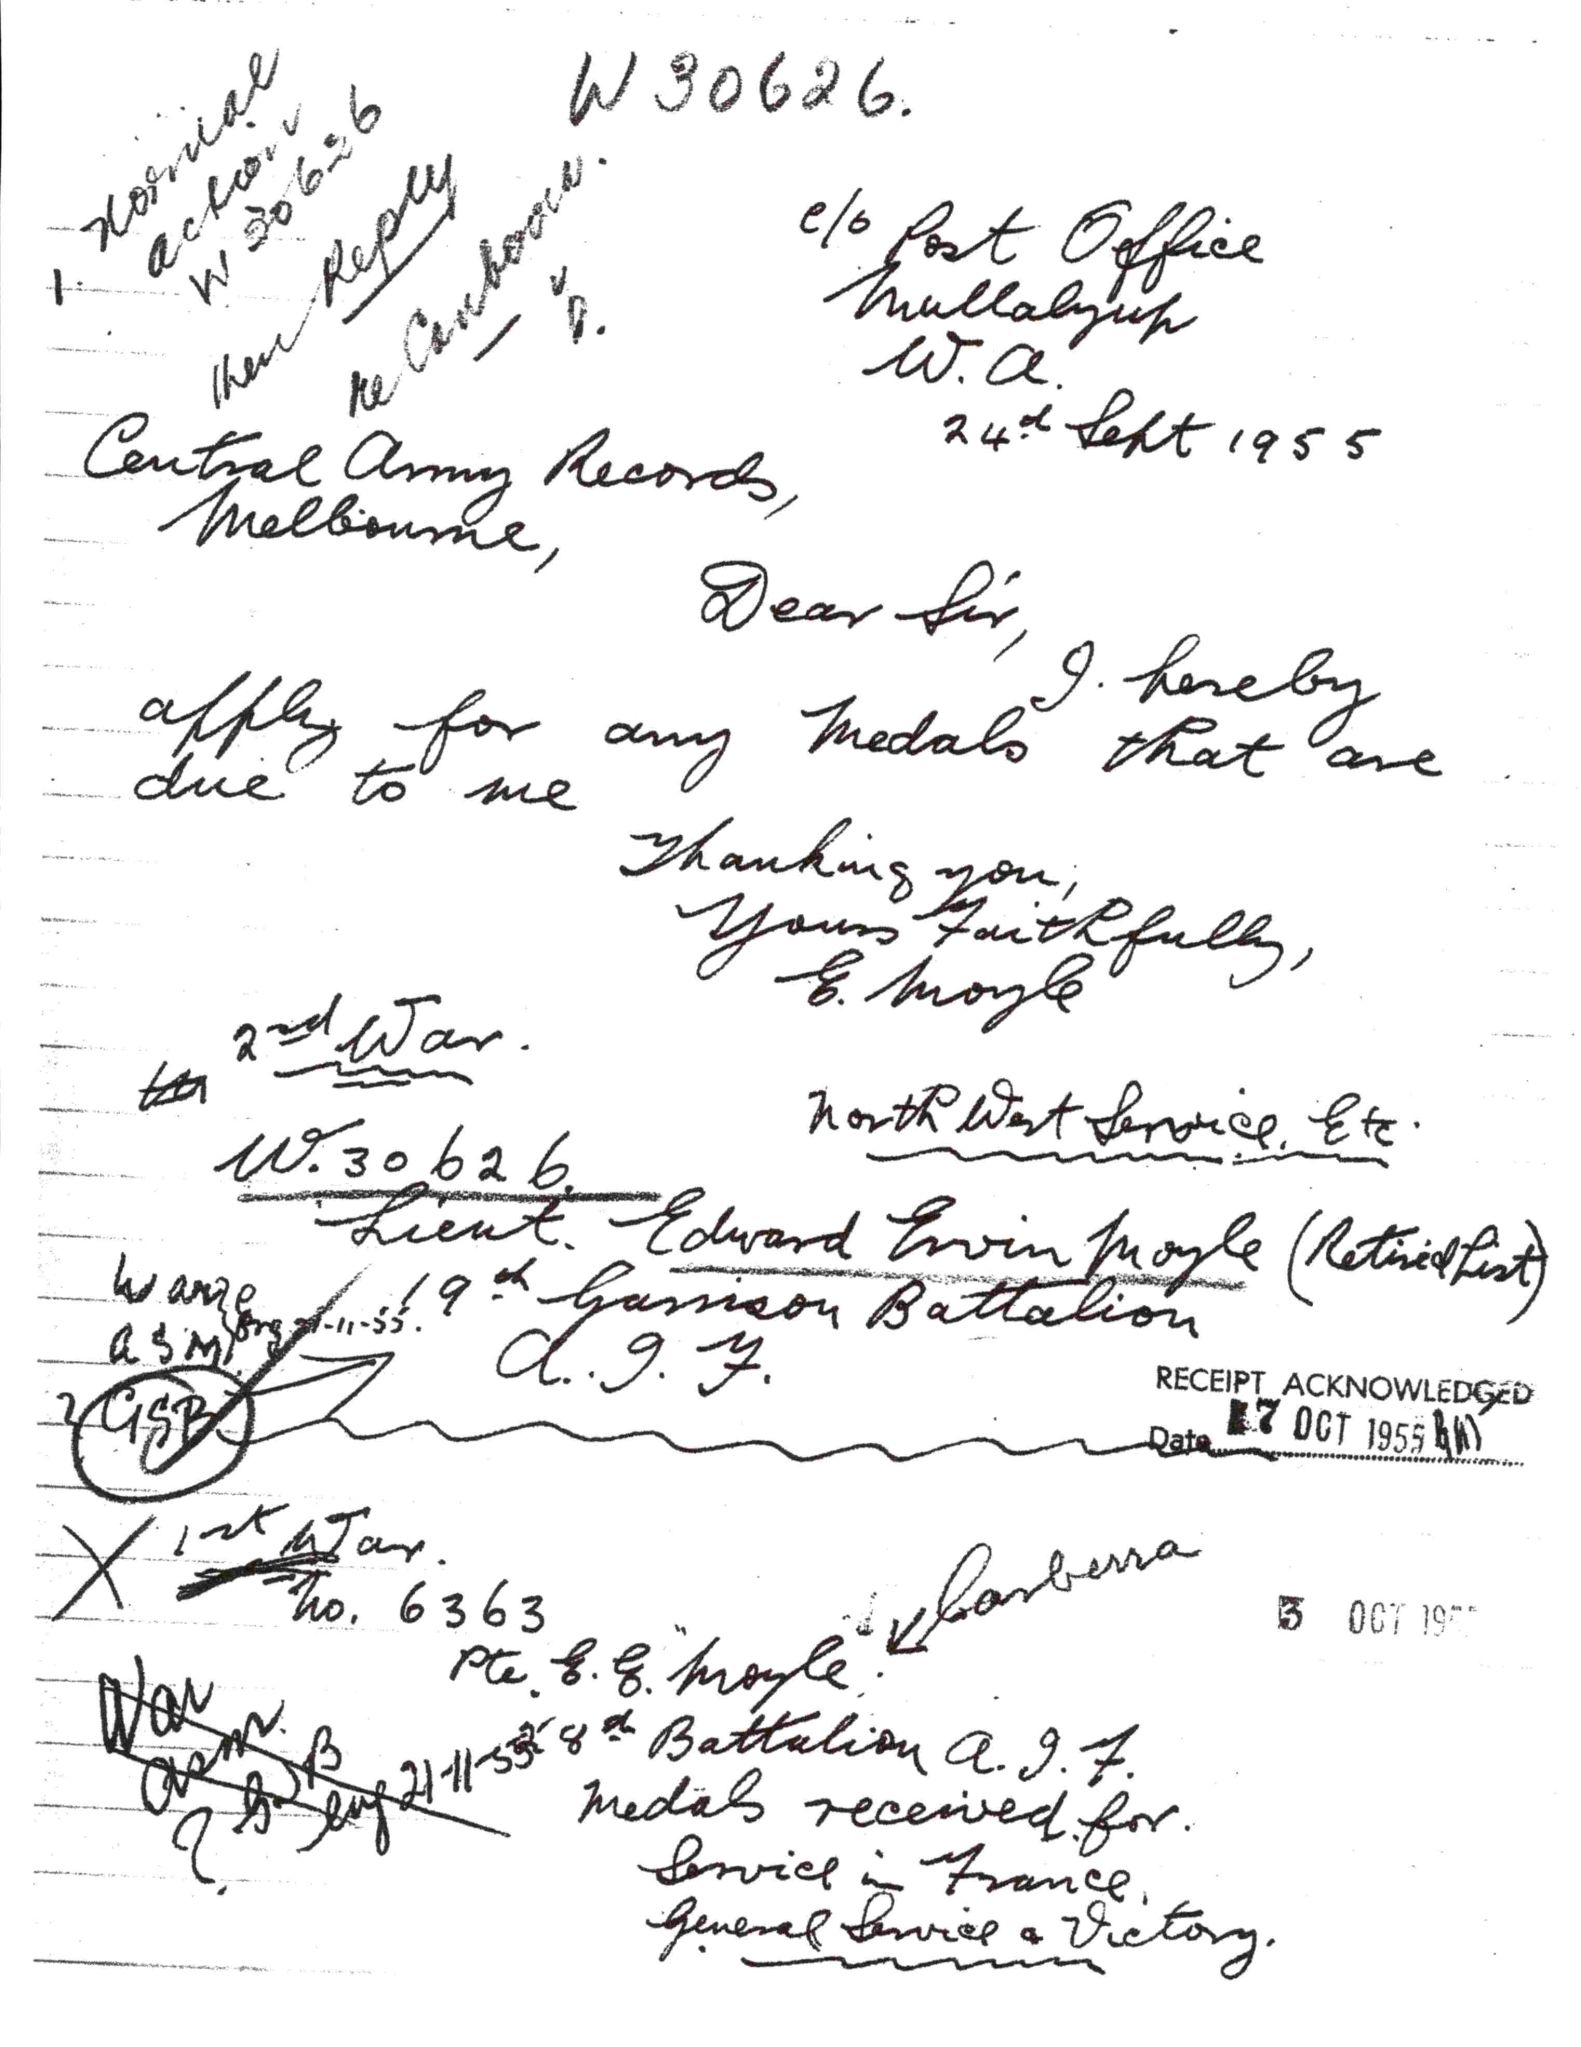 W 30626.
1. Normal
action
W 30626
then Reply
re Canberra.
c/o Post Office
Mullalyup
W. A.
24th Sept 1955
Central Army Records,
Melbourne,
Dear Sir,
I. hereby
apply for any Medals that are
due to me
Thanking you,
Yours Faithfully,
E. Moyle
2nd War.
North West Service. Etc.
W. 30626.
Lieut. Edward Ervin Moyle (Retired List)
19th Garrison Battalion
A. I. F.
ASM
GSB
RECEIPT ACKNOWLEDGED
Date 17 OCT 1955
1st War.
No. 6363
Canberra
3 OCT 195
Pte. E. E. Moyle.
War
asm.
B
21-11-55
8th Battalion A. I. F.
Medals received for.
Service in France.
General Service & Victory.